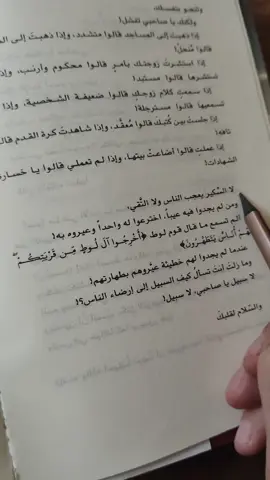 وتنجو بنفسك
ولكنك يا صاحبي تفشل!
إذا ذهبتَ إلى المساجد قالوا متشدد، وإذا ذهبتَ إلى
قالوا مُنحل!
إذا استشرتَ زوجتك بأمرٍ قالوا محكوم وأرنب، وإذا
تستشرها قالوا مستبد!
إذا سمعتِ كلام زوجكِ قالوا ضعيفة الشخصية، وإذا
تسمعيها قالوا مسترجلة!
إذا جلستَ بين كُتبكَ قالوا مُعقَّد، وإذا شاهدتَ كرة القدم قالوا
تافه!
إذا عملتِ قالوا أضاعتْ بيتها، وإذا لم تعملي قالوا يا خسارة
الشهادات!
لا السّكير يعجب الناس ولا التّقي،
ومن لم يجدوا فيه عيباً، اخترعوا له واحداً وعيروه به!
ألم تسمع ما قال قوم لوط ﴿أَخْرِجُوا آلَ لُوطٍ مِّن قَرْيَتِكُمْ
إِنَّهُمْ أُنَاسٌ يَتَطَهَّرُونَ﴾
عندما لم يجدوا لهم خطيئة عيّروهم بطهارتهم!
وما زلتَ أنتَ تسألُ كيف السبيل إلى إرضاء الناس؟!
لا سبيل يا صاحبي، لا سبيل!
والسّلام لقلبكَ